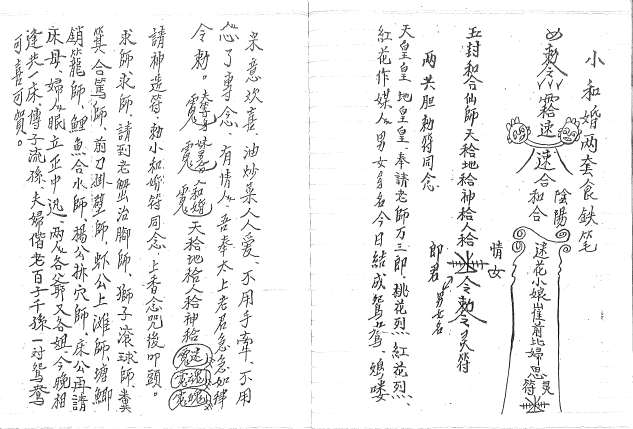 小和婚兩套食鉄笔
敕令
霜速
速合
和合
陰陽
迷花小娘崔前比婦思灵符
五封和合仙師天袷地袷神袷人袷
情女
郎君
男女名
令敕令灵符
兩共胆勅符同念
天皇皇地皇皇奉請老師万三郎桃花烈紅花烈
紅花作媒人男女多名今日結成鴛鴦
米意欢喜油炒菜人人愛不用手牽不用
了專念有情人吾奉太上老君急急如律
令勅。
和婚
天袷地袷人袷神袷
請神造符勅小和婚符同念上香念咒後叩頭。
求師求師請到老蟹治腳師獅子滾球師糞
箕合篤師剪刀掛壁師虾公上灘師塘鯽
銷籠師鯉魚合水師楊公抹穴師床公再請
床母婦人眼立正中迅兩人各爺又各姐今晚相
逢共一床傳子流孫夫婦偕老百子千孫一对鴛鴦
可喜可賀。